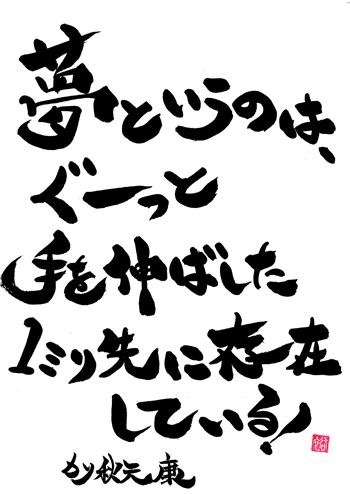 夢というのは、
ぐーっと
手を伸ばした
1ミリ先に存在
している!
by 秋元康